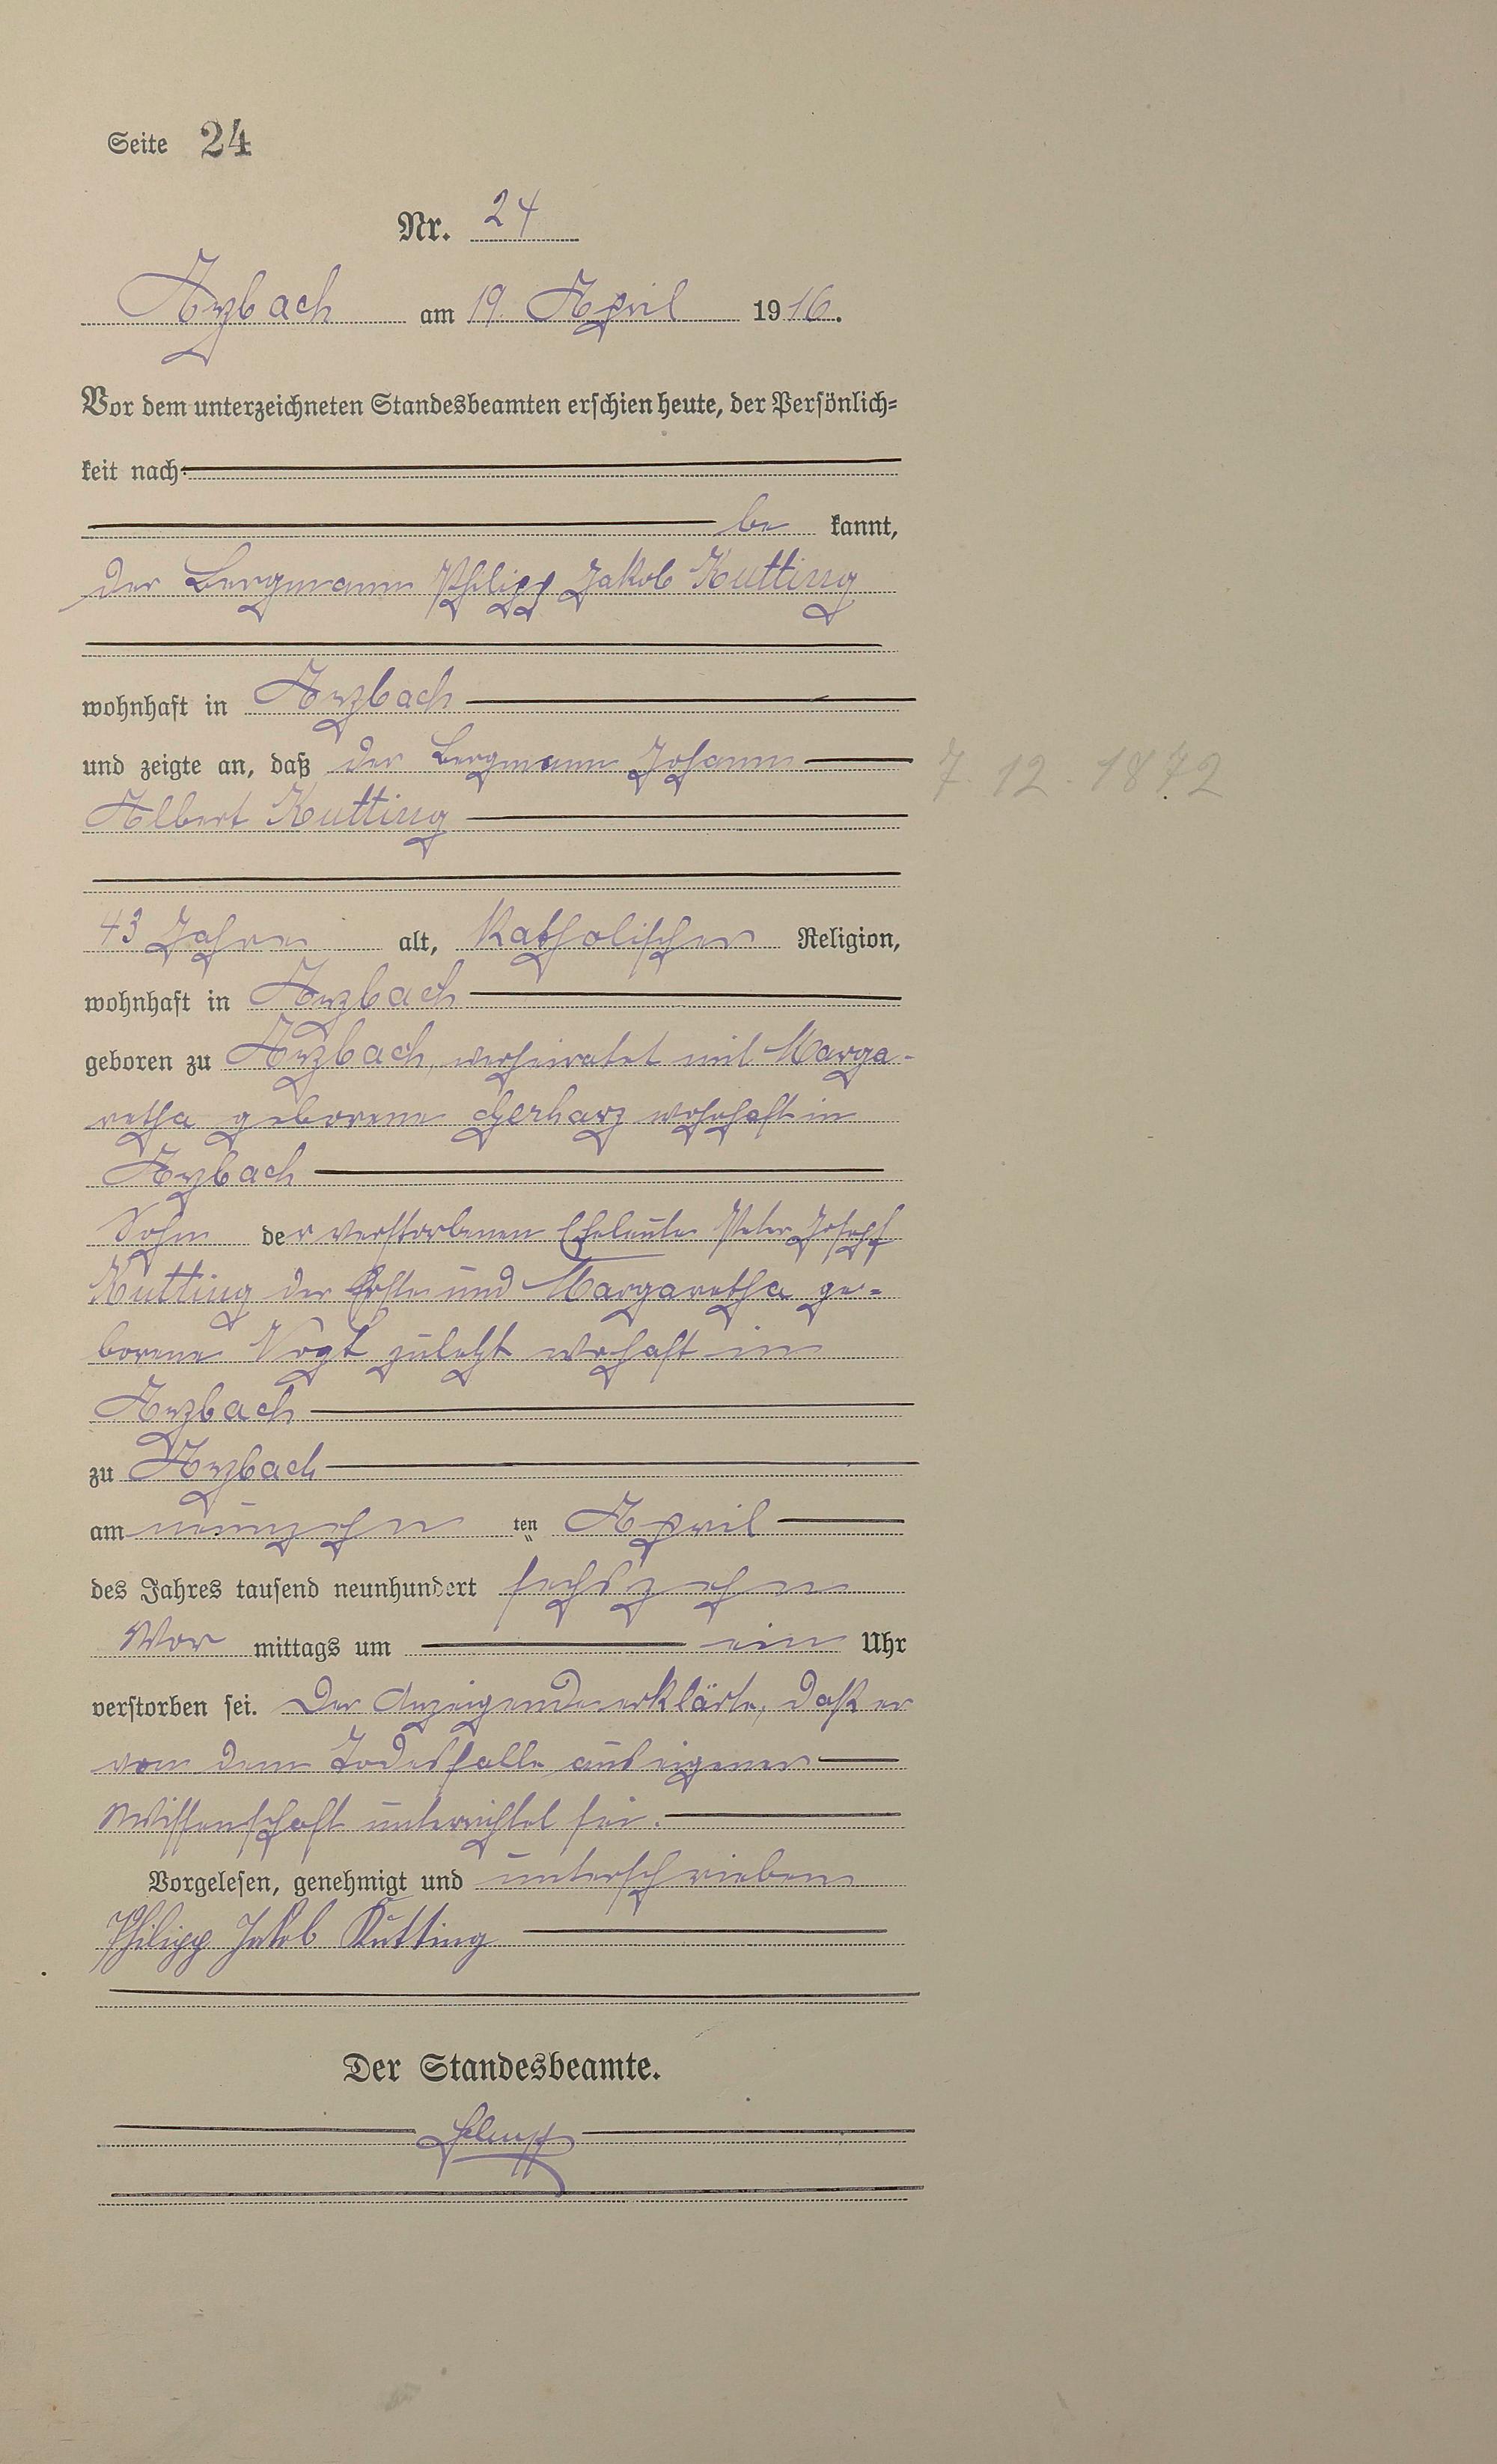 Seite 24
Nr. 24
Arzbach am 19. April 1916.
Vor dem unterzeichneten Standesbeamten erschien heute, der Persönlich=
keit nach
be kannt,
der Bergmann Philipp Jakob Kutting
wohnhaft in Arzbach
und zeigte an, daß der Bergmann Johann
7. 12. 1872
Albert Kutting
43 Jahre alt, katholischer Religion,
wohnhaft in Arzbach
geboren zu Arzbach, verheiratet mit Marga-
retha geborene Gerharz wohnhaft in
Arzbach
Sohn der verstorbenen Eheleute Peter Joseph
Kutting der Erste und Margaretha ge=
borene Vogt zuletzt wohhaft in
Arzbach
zu Arzbach
am neunzehn ten April
des Jahres tausend neunhundert sechszehn
Vor mittags um ein Uhr
verstorben sei. Der Anzeigende erklärte, daß er
von dem Todesfalle aus eigener
Wissenschaft unterrichtet sei.
Vorgelesen, genehmigt und unterschrieben
Philipp Jakob Kutting
Der Standesbeamte.